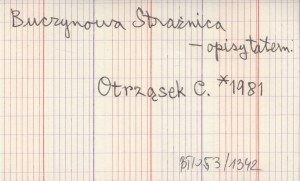 Buczynowa Strażnica
– opisy tatern.
Otrząsek C. *1981
53/1342